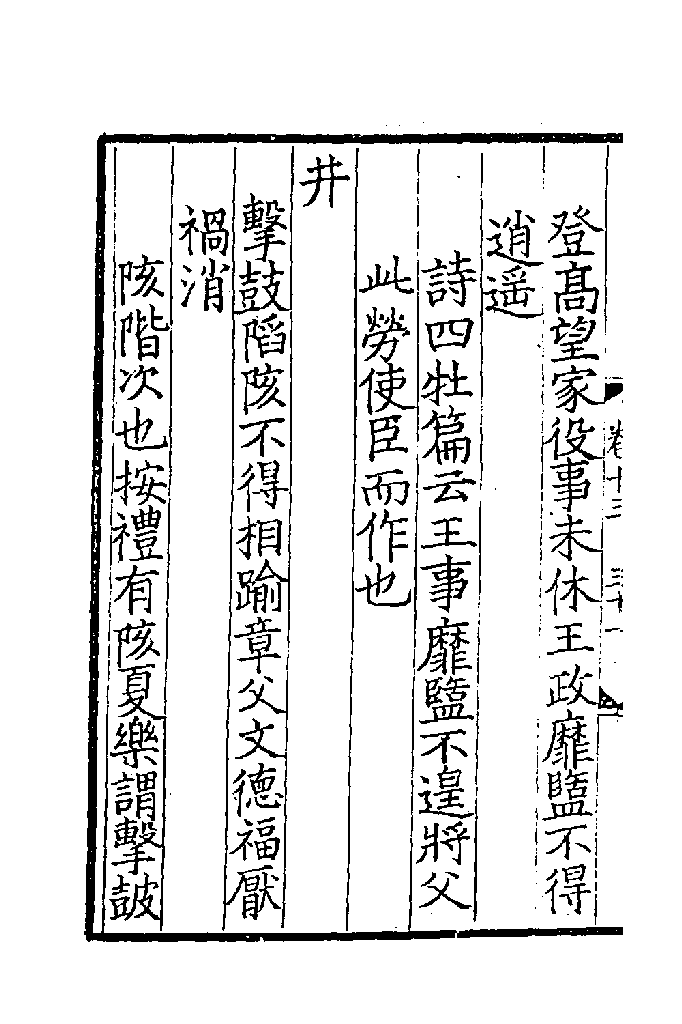 卷十三 三十一
登髙望家役事未休王政靡盬不得
逍遥
詩四牡篇云王事靡盬不遑將父
此勞使臣而作也
井
擊鼓䧟陔不得相踰章父文德福厭
禍消
陔階次也按禮有陔夏樂謂擊皷